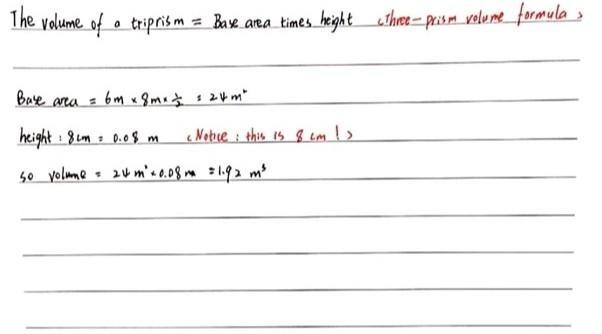 The volume of a triprism = Base area times height <Three-prism volume formula>
Base area = 6m × 8m × ½ = 24 m²
height : 8cm = 0.08 m <Notice : this is 8 cm !>
so volume = 24 m² × 0.08 m = 1.92 m³